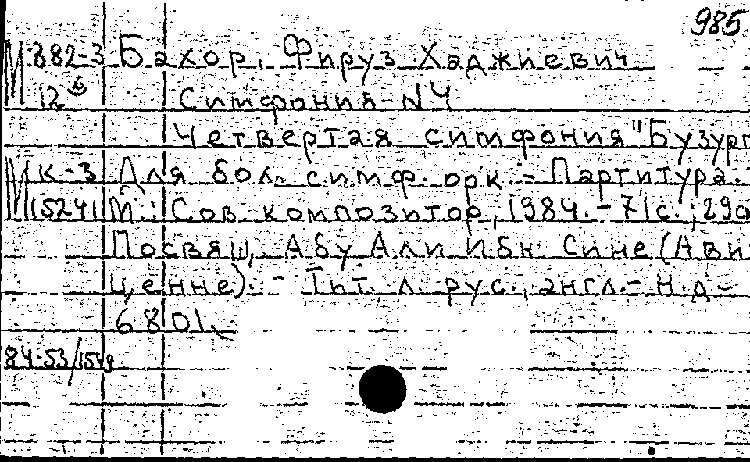 985
М 882-3 Бахор, Фируз Хаджиевич
12 Симфония N4
Четвертая симфония "Бузург
М К-3 Для бол. симф. орк. - Партитура. -
15241 М.: Сов. композитор, 1984. - 71с.; 29с
Посвящ. Абу Али Ибн Сине (Ави
ценне). - Тит. л. рус., англ. - Н.д. -
6801.
84-53/1549